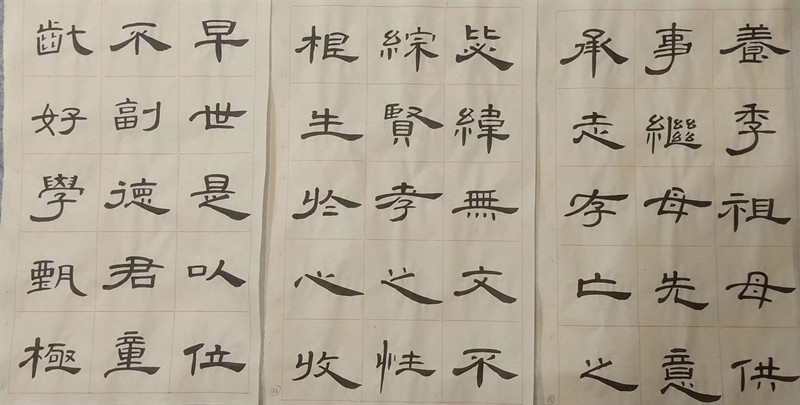 早世是以位
不副德君童
齔好學甄極
毖緯無文不
綜賢孝之性
根生於心收
養季祖母供
事繼母先意
承志存亡之